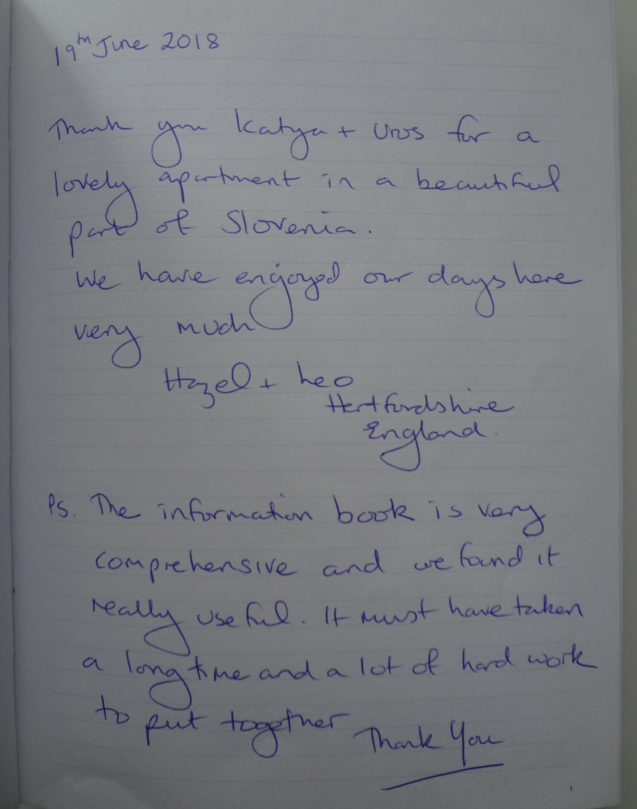 19th June 2018
Thank you Katya + Uros for a
lovely apartment in a beautiful
part of Slovenia.
We have enjoyed our days here
very much
Hazel + Leo
Hertfordshire
England.
Ps. The information book is very
comprehensive and we found it
really useful. It must have taken
a long time and a lot of hard work
to put together
Thank You